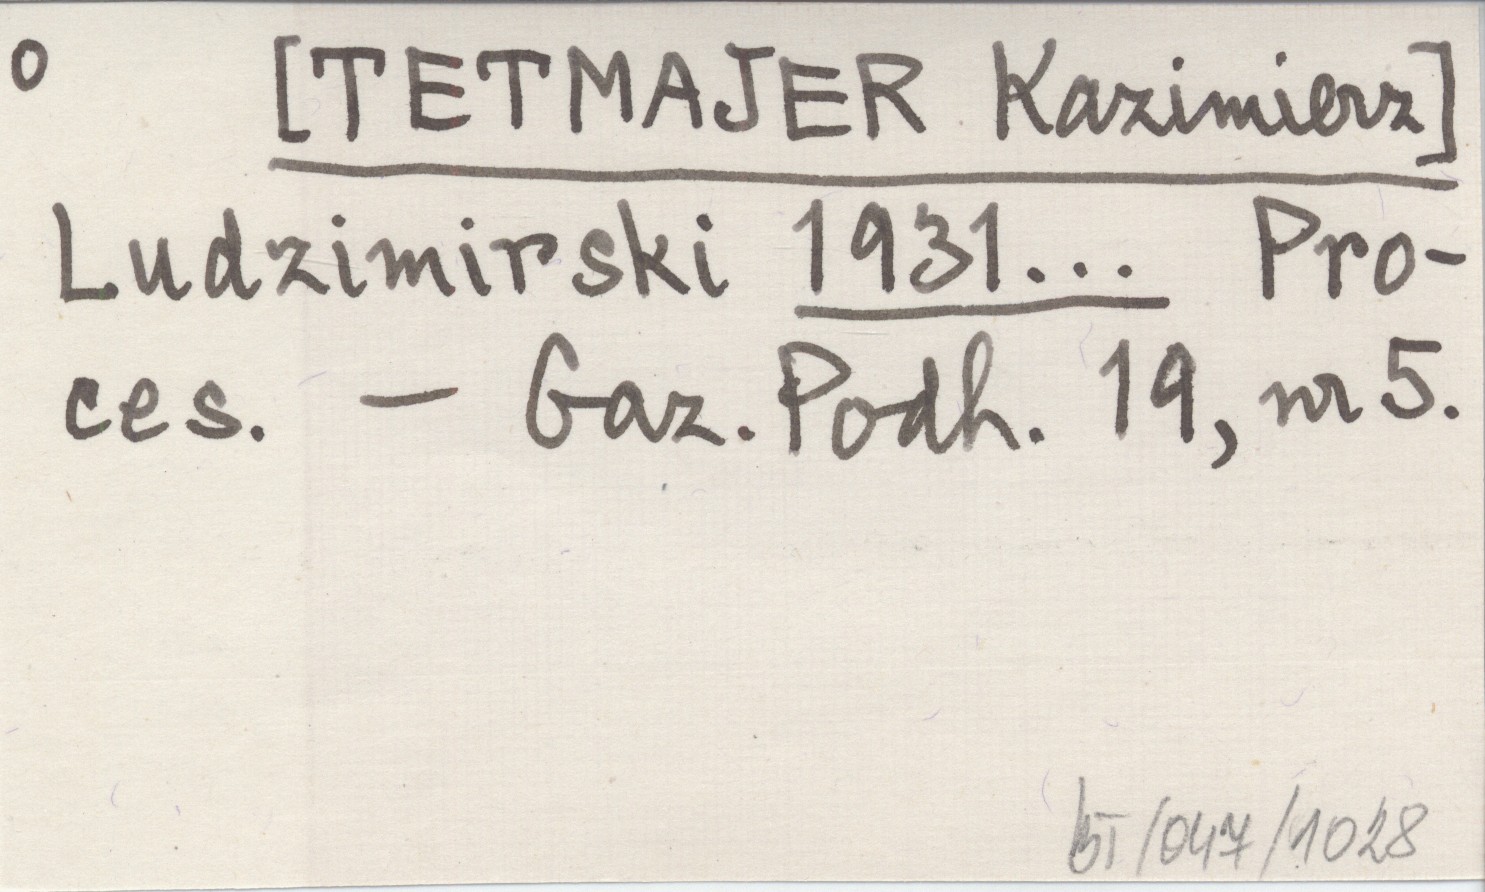 o [TETMAJER Kazimierz]
Ludzimirski 1931... Pro-
ces. — Gaz. Podh. 19, nr 5.
BT/047/1028